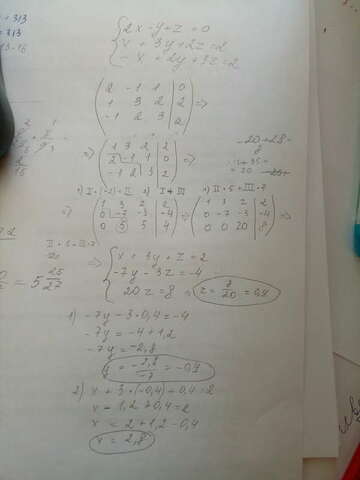 2x - y + z = 0
x + 3y + 2z = 2
- x + 2y + 3z = 2
2 -1 1 | 0
1 3 2 | 2
-1 2 3 | 2
=>
=>
1 3 2 | 2
2 -1 1 | 0
-1 2 3 | 2
=>
-20+28=
8
1) I·(-2)+II 2) I+III
=>
1 3 2 | 2
0 -7 -3 | -4
0 5 5 | 4
=>
1 3 2 | 2
0 -7 -3 | -4
0 0 20 | 8
=>
=>
x + 3y + z = 2
-7y - 3z = -4
20z = 8
z = 8/20 = 0,4
= 5 25/27
1) -7y - 3·0,4 = -4
-7y = -4+1,2
-7y = -2,8
y = -2,8/-7 = -0,4
2) x + 3·(-0,4) + 0,4 = 2
x - 1,2 + 0,4 = 2
x = 2 + 1,2 - 0,4
x = 2,8